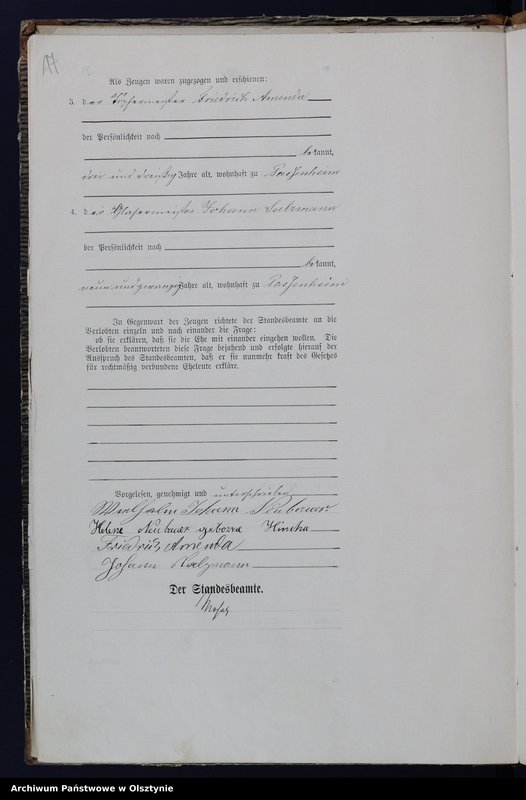 Als Zeugen waren zugezogen und erschienen:
3. der Töpfermeister Friedrich Amenda
der Persönlichkeit nach
bekannt,
drei und dreißig Jahre alt, wohnhaft zu Passenheim
4. der Glasermeister Johann
der Persönlichkeit nach
bekannt,
neun und zwanzig Jahre alt, wohnhaft zu Passenheim
In Gegenwart der Zeugen richtete der Standesbeamte an die
Verlobten einzeln und nach einander die Frage:
ob sie erklären, daß sie die Ehe mit einander eingehen wollen. Die
Verlobten beantworteten diese Frage bejahend und erfolgte hierauf der
Ausspruch des Standesbeamten, daß er sie nunmehr kraft des Gesetzes
für rechtmäßig verbundene Eheleute erkläre.
Vorgelesen, genehmigt und unterschrieben
Wilhelm Johann Neubauer
Helene Neubauer geborne
Friedrich Amenda
Johann
Der Standesbeamte.
Archiwum Państwowe w Olsztynie